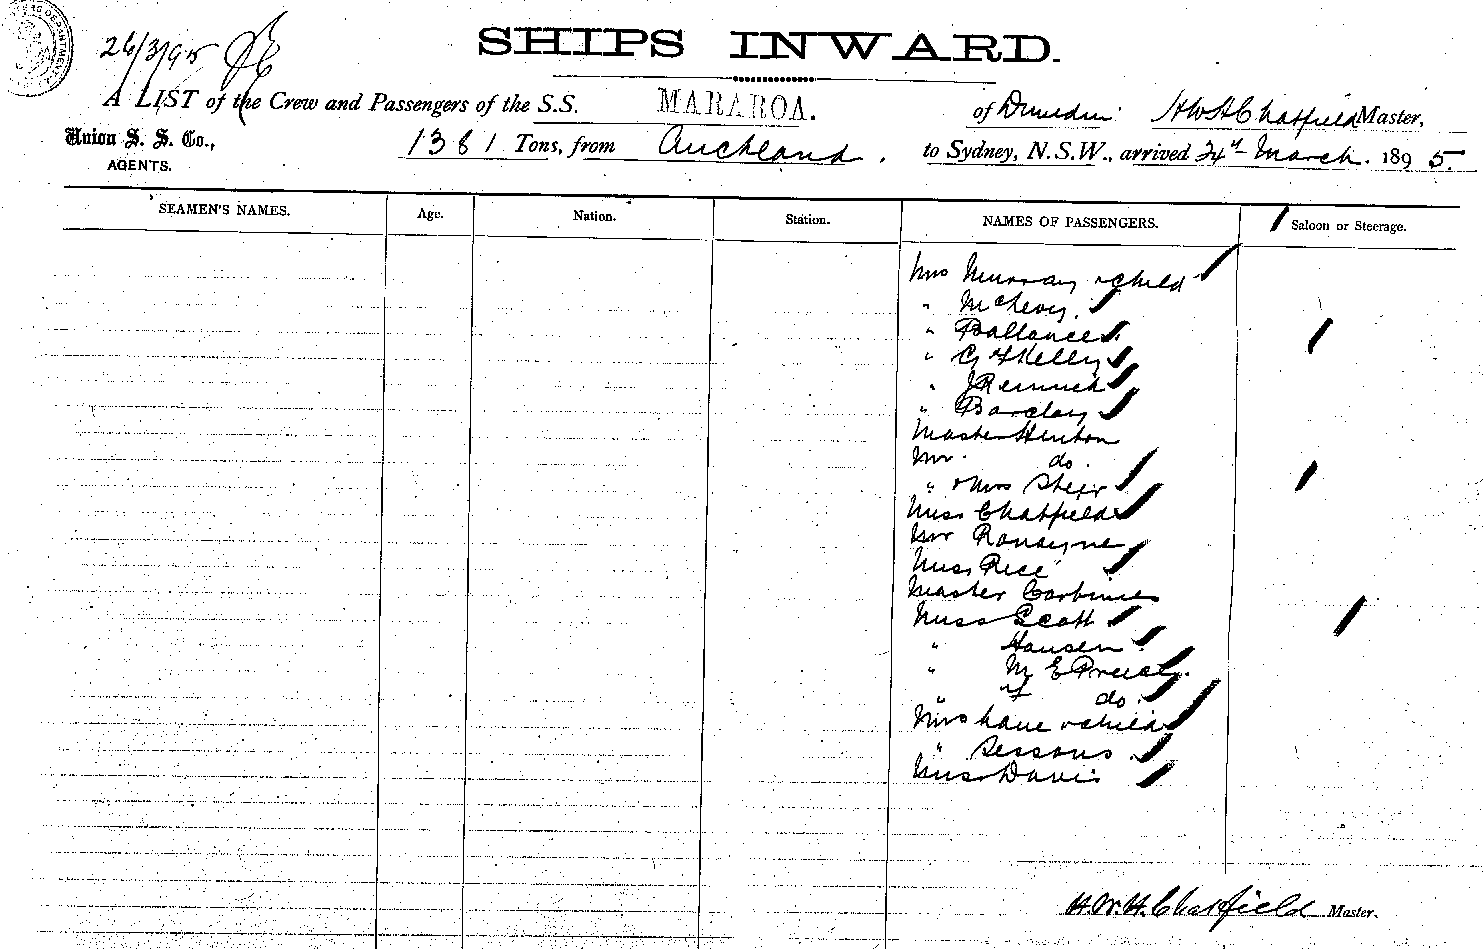 26/3/95
SHIPS INWARD.
A LIST of the Crew and Passengers of the S.S. MARAROA. of Dunedin. H W H Chatfield Master,
Union S. S. Co.,
AGENTS.
1381 Tons, from Auckland, to Sydney, N.S.W., arrived 24th March. 1895.
SEAMEN'S NAMES. Age. Nation. Station. NAMES OF PASSENGERS. Saloon or Steerage.
Mrs Murray & child
" McHevy.
" Ballance
" G F Kelly
" J
" Barclay
Master Henton
Mr. do.
" & Mrs
Miss Chatfield
Mr Ronayne
Miss Rice
Master
Miss Scott
" Hansen
" M E
" do.
Mrs Lane & child
" Sessons
Miss Davis
H.W.H. Chatfield Master.